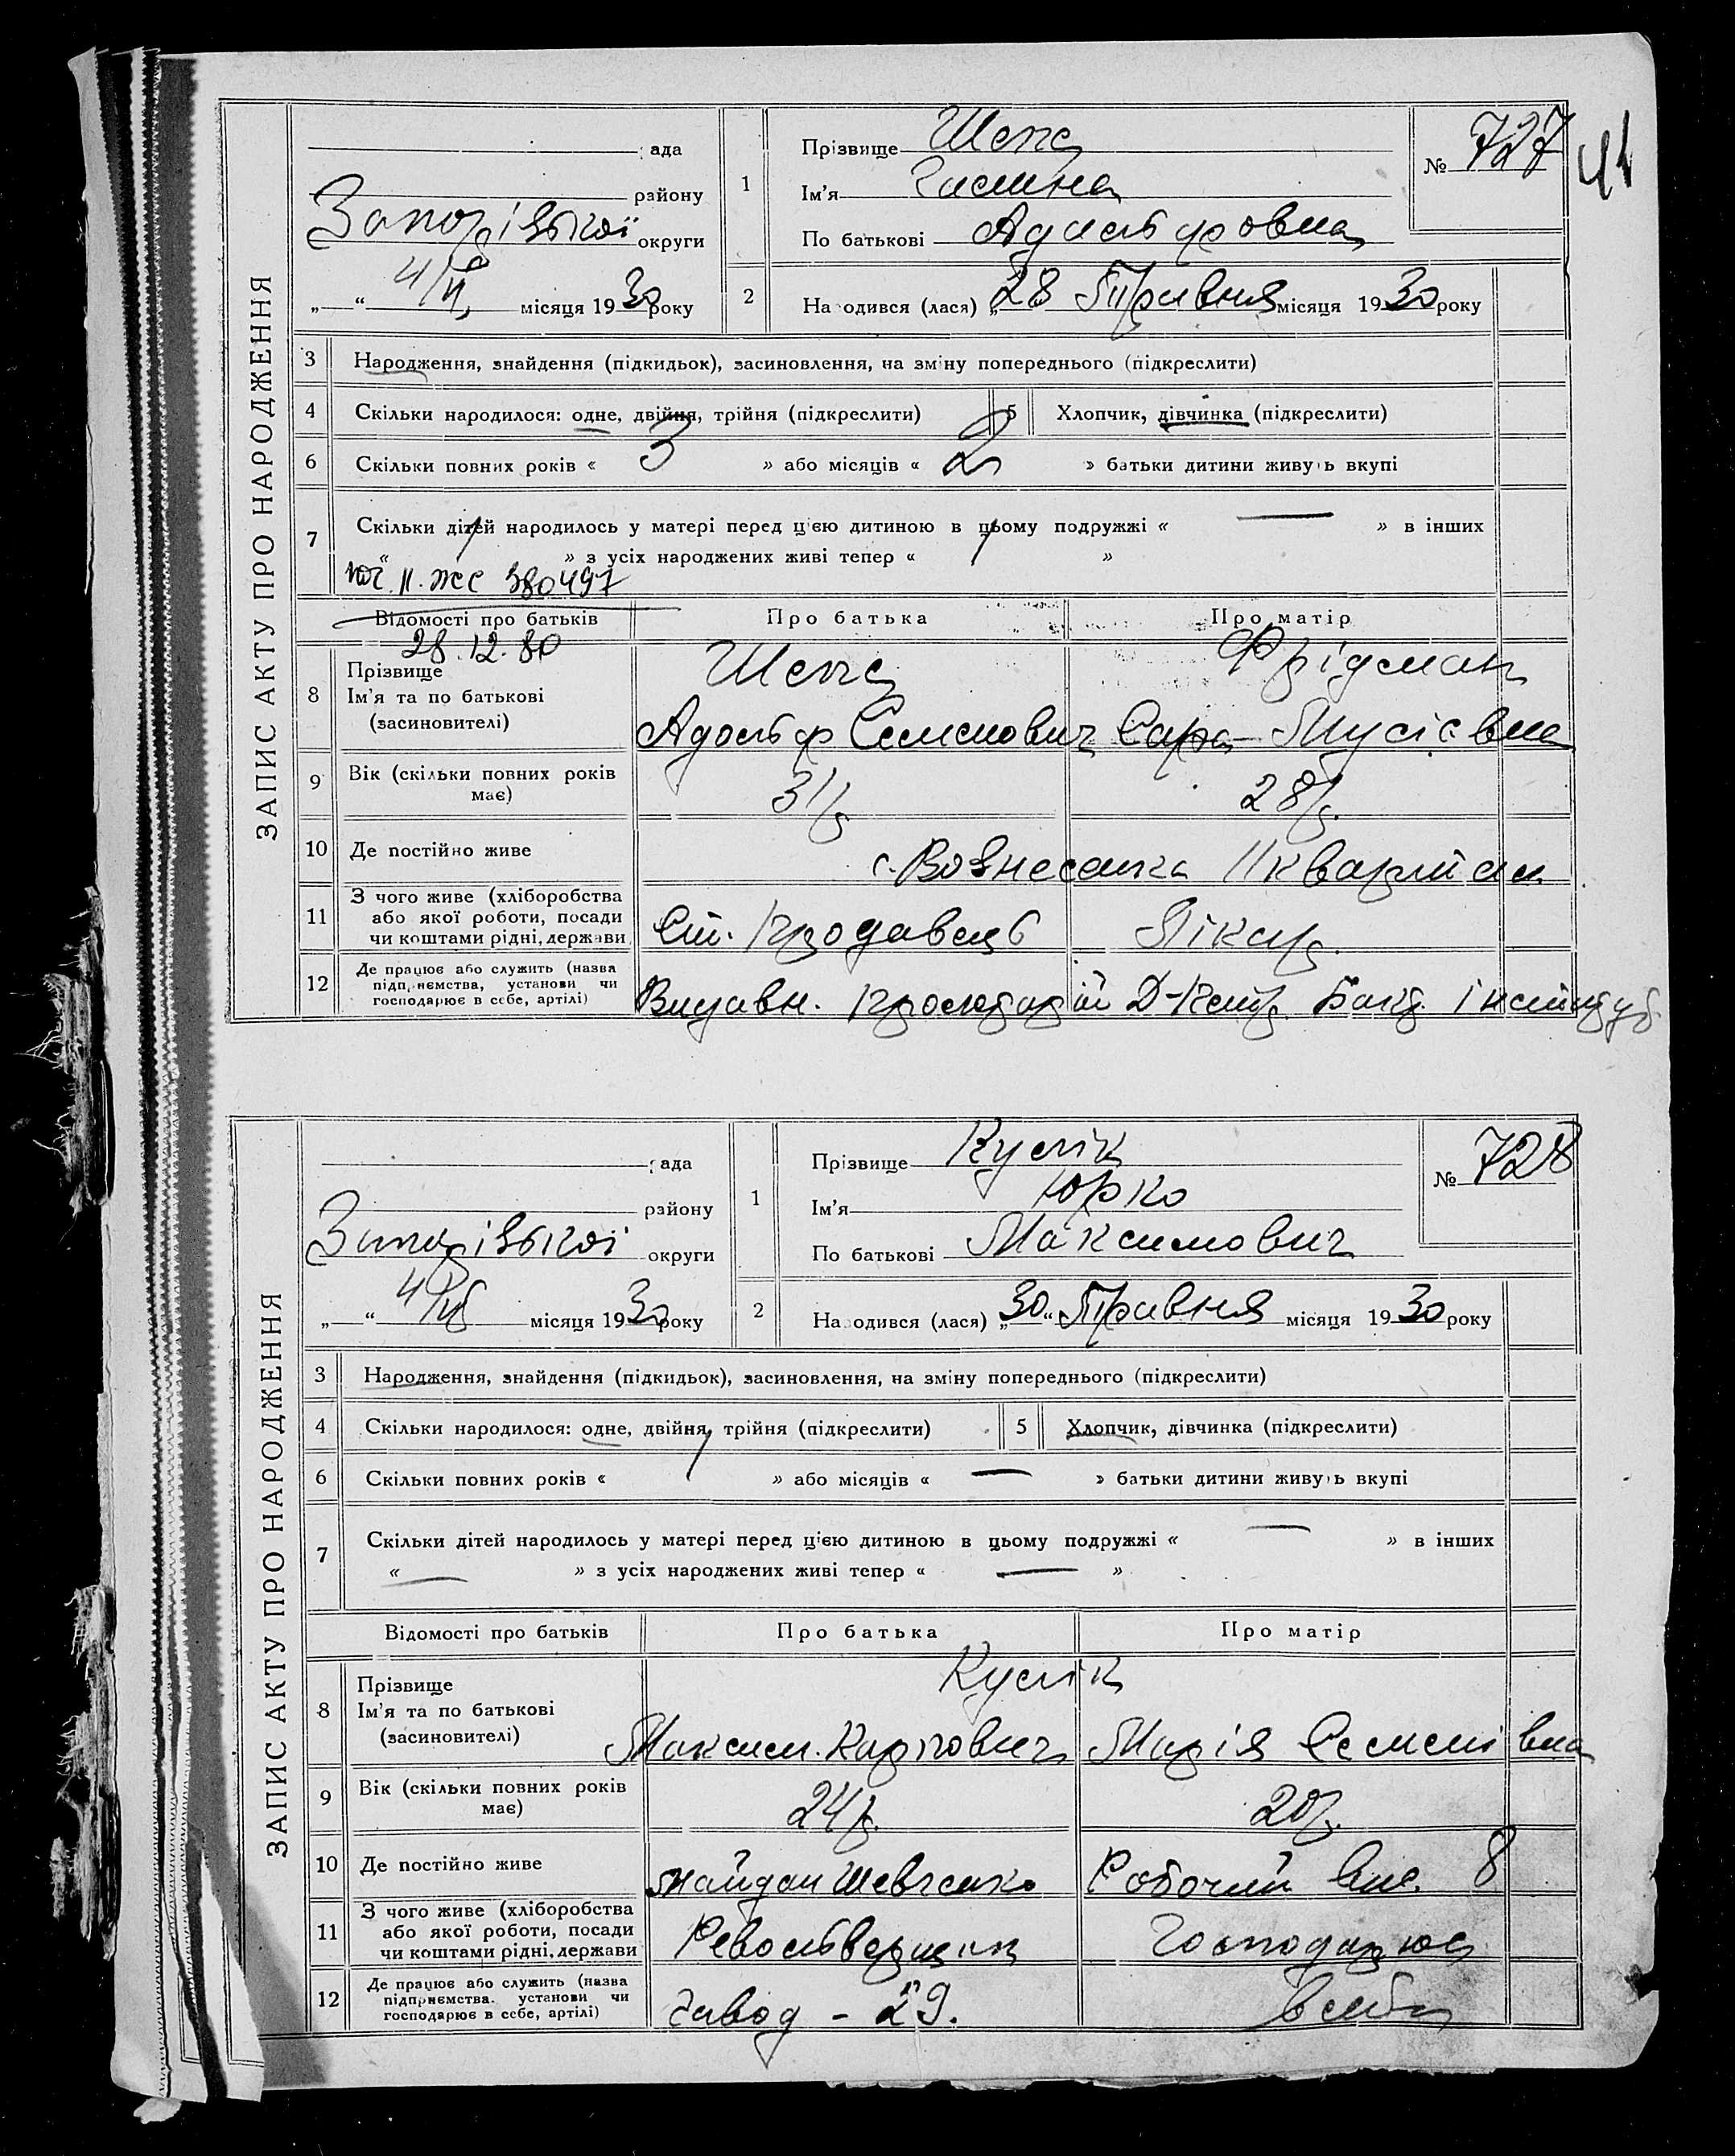 ЗАПИС АКТУ ПРО НАРОДЖЕННЯ
рада
району
Запорізької округи
„ “ 4/VI місяця 1930 року
1
Прізвище Шепс
Ім'я Галина
По батькові Адольфовна
№ 727
41
2
Народився (лася) „28 Травня місяця 1930 року
3 Народження, знайдення (підкидьок), засиновлення, на зміну попереднього (підкреслити)
4 Скільки народилося: одне, двійня, трійня (підкреслити) 5 Хлопчик, дівчинка (підкреслити)
6 Скільки повних років « 3 » або місяців « 2 » батьки дитини живуть вкупі
7 Скільки дітей народилось у матері перед цією дитиною в цьому подружжі « — » в інших
« » з усіх народжених живі тепер « »
II. ЖС 380497
Відомості про батьків Про батька Про матір
28.12.80
8 Прізвище
Ім'я та по батькові
(засиновителі)
Шепс Фрідман
Адольф Семенович Сара Мусієвна
9 Вік (скільки повних років має) 31 р. 28 р.
10 Де постійно живе с. Вознесенка II квартал
11 З чого живе (хліборобства
або якої роботи, посади
чи коштами рідні, держави
Ст. продавець Лікар
12 Де працює або служить (назва
підприємства, установи чи
господарює в себе, артілі)
Видавн. пролетарій Бакт. Інститут
ЗАПИС АКТУ ПРО НАРОДЖЕННЯ
рада
району
Запорізької округи
„ “ 4/VI місяця 1930 року
1
Прізвище Куслік
Ім'я Юрко
По батькові Максимович
№ 728
2
Народився (лася) „30“ Травня місяця 1930 року
3 Народження, знайдення (підкидьок), засиновлення, на зміну попереднього (підкреслити)
4 Скільки народилося: одне, двійня, трійня (підкреслити) 5 Хлопчик, дівчинка (підкреслити)
6 Скільки повних років « 1 » або місяців « — » батьки дитини живуть вкупі
7 Скільки дітей народилось у матері перед цією дитиною в цьому подружжі « — » в інших
« — » з усіх народжених живі тепер « — »
Відомості про батьків Про батька Про матір
8 Прізвище
Ім'я та по батькові
(засиновителі)
Куслік
Максим Карпович Марія Семенівна
9 Вік (скільки повних років має) 24 р. 20 р.
10 Де постійно живе майдан Шевченко Робочий 8
11 З чого живе (хліборобства
або якої роботи, посади
чи коштами рідні, держави
Револьверщик Господарює
12 Де працює або служить (назва
підприємства. установи чи
господарює в себе, артілі)
Завод - 29. в себе